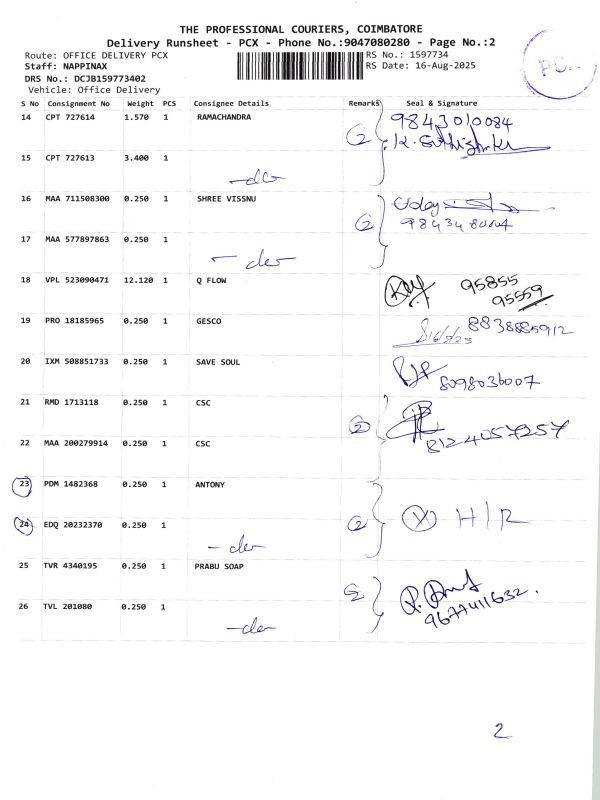 THE PROFESSIONAL COURIERS, COIMBATORE
Delivery Runsheet - PCX - Phone No.:9047080280 - Page No.:2
Route: OFFICE DELIVERY PCX
RS No.: 1597734
Staff: NAPPINAX
RS Date: 16-Aug-2025
DRS No.: DCJB159773402
Vehicle: Office Delivery
S No Consignment No Weight PCS Consignee Details Remarks Seal & Signature
14 CPT 727614 1.570 1 RAMACHANDRA 2 9843010084
15 CPT 727613 3.400 1
16 MAA 711508300 0.250 1 SHREE VISSNU 2 Uday
17 MAA 577897863 0.250 1
18 VPL 523090471 12.120 1 Q FLOW 95855
95559
19 PRO 18185965 0.250 1 GESCO 8838885912
20 IXM 508851733 0.250 1 SAVE SOUL
8098036007
21 RMD 1713118 0.250 1 CSC 2
8124057257
22 MAA 200279914 0.250 1 CSC
23 PDM 1482368 0.250 1 ANTONY
24 EDQ 20232370 0.250 1 2 X H/R
25 TVR 4340195 0.250 1 PRABU SOAP 2
9677411632.
26 TVL 201080 0.250 1
2